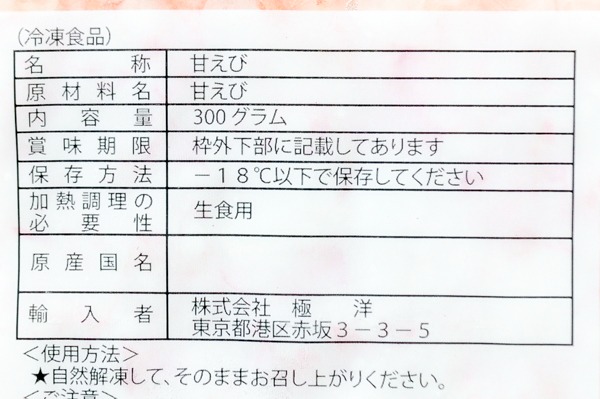 (冷凍食品)
名称 甘えび
原材料名 甘えび
内容量 300グラム
賞味期限 枠外下部に記載してあります
保存方法 －18℃以下で保存してください
加熱調理の
必要性 生食用
原産国名
輸入者 株式会社 極 洋
東京都港区赤坂3－3－5
＜使用方法＞
★自然解凍して、そのままお召し上がりください。
＜ご注意＞